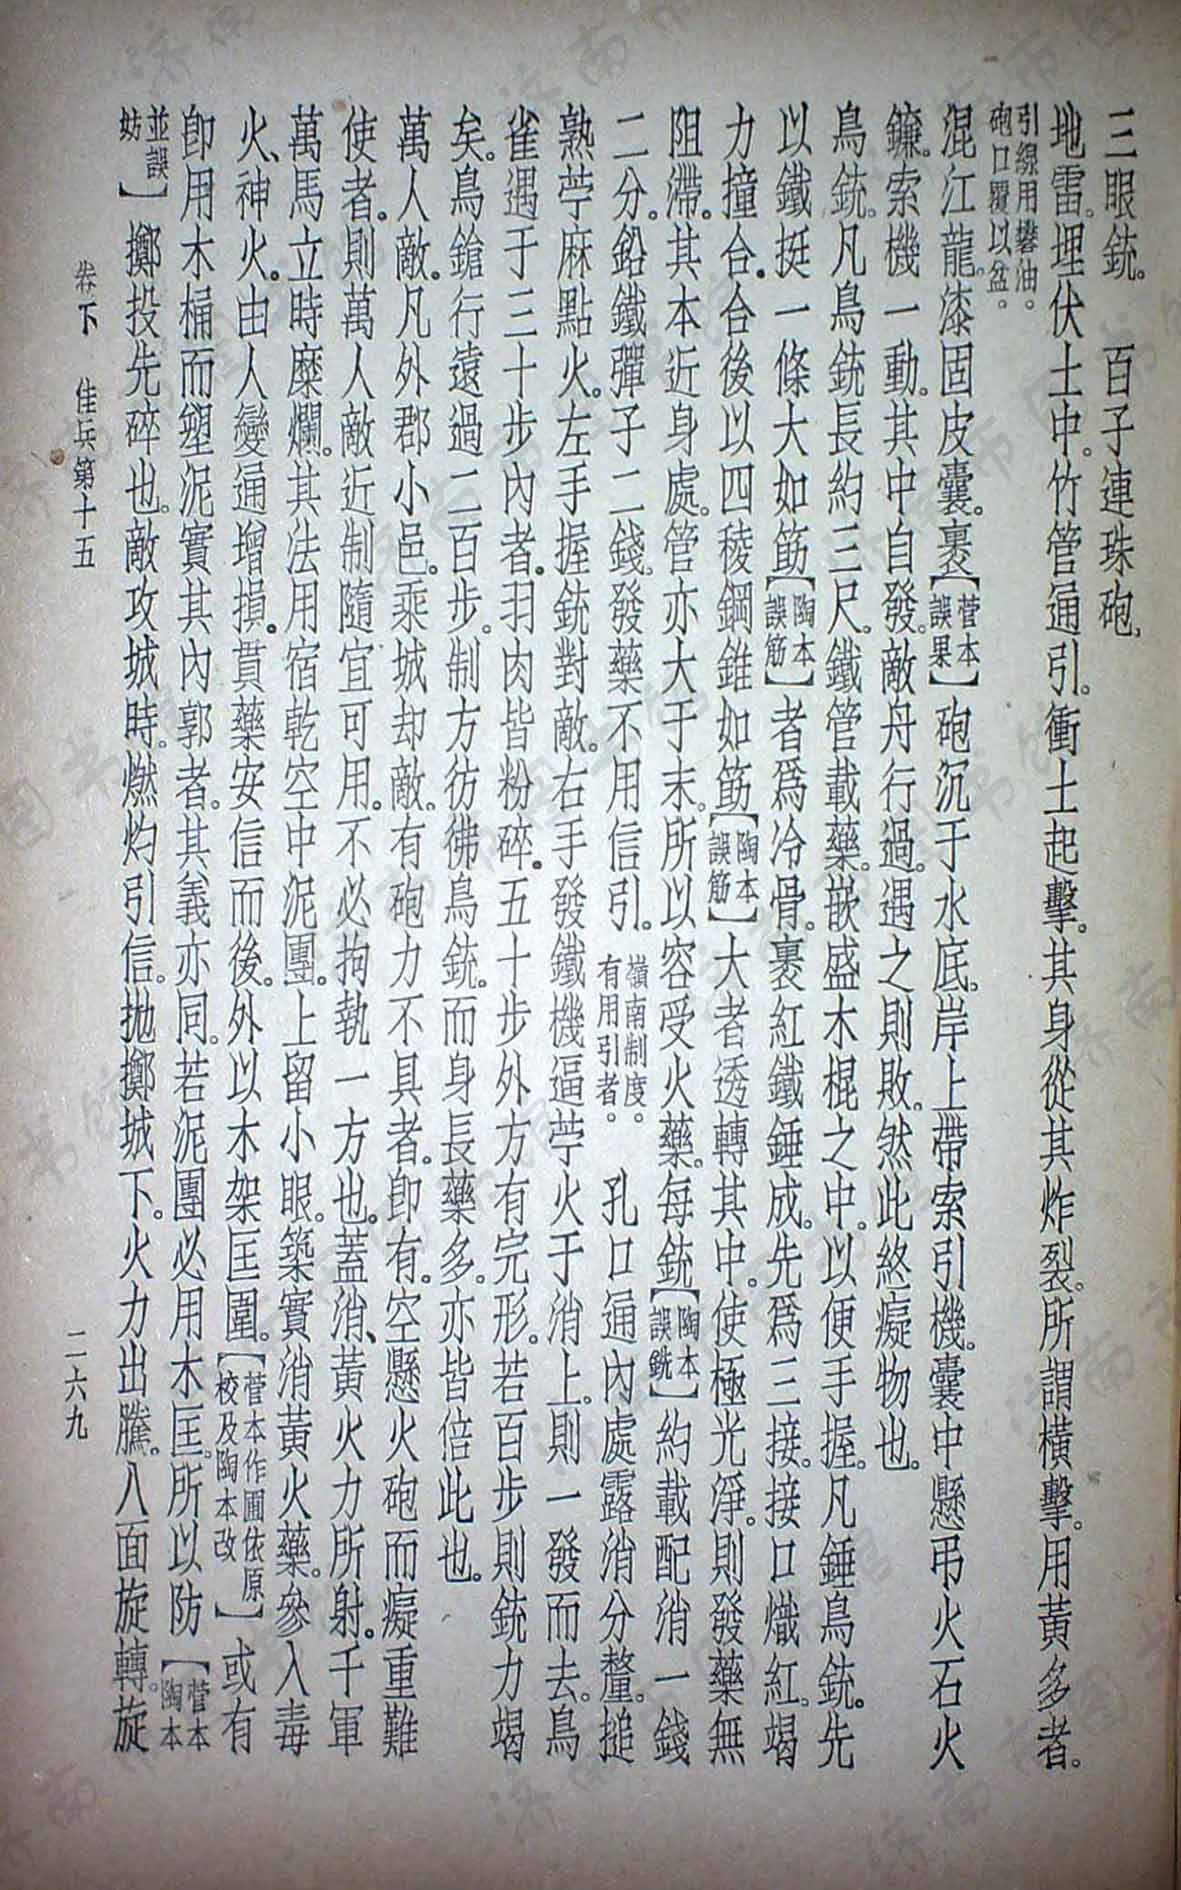 三眼銃。　百子連珠砲。
地雷。埋伏土中。竹管通引。衝土起擊。其身從其炸裂。所謂橫擊。用黃多者。
引線用礬油。砲口覆以盆。
混江龍。漆固皮囊。裹【菅本誤果】砲沉于水底。岸上帶索引機。囊中懸吊火石火
鐮。索機一動。其中自發。敵舟行過。遇之則敗。然此終癡物也。
鳥銃。凡鳥銃長約三尺。鐵管載藥。嵌盛木棍之中。以便手握。凡錘鳥銃。先
以鐵挺一條大如筯【陶本誤筋】者爲冷骨。裹紅鐵錘成。先爲三接。接口熾紅。竭
力撞合。合後以四稜鋼錐如筯【陶本誤筋】大者透轉其中。使極光淨。則發藥無
阻滯。其本近身處。管亦大于末。所以容受火藥。每銃【陶本誤銑】約載配消一錢
二分。鉛鐵彈子二錢。發藥不用信引。嶺南制度。有用引者。孔口通內處露消分釐。搥
熟苧麻點火。左手握銃對敵。右手發鐵機逼苧火于消上。則一發而去。鳥
雀遇于三十步內者。羽肉皆粉碎。五十步外方有完形。若百步則銃力竭
矣。鳥鎗行遠過二百步。制方彷彿鳥銃。而身長藥多。亦皆倍此也。
萬人敵。凡外郡小邑。乘城却敵。有砲力不具者。卽有。空懸火砲而癡重難
使者。則萬人敵近制隨宜可用。不必拘執一方也。蓋消、黃火力所射。千軍
萬馬立時糜爛。其法用宿乾空中泥團。上留小眼。築實消黃火藥。參入毒
火、神火。由人變通增損。貫藥安信而後。外以木架匡圍。【菅本作圃依原校及陶本改】或有
卽用木桶而塑泥實其內郭者。其義亦同。若泥團必用木匡。所以防【菅本陶本
並誤妨】擲投先碎也。敵攻城時。燃灼引信。拋擲城下。火力出騰。八面旋轉。旋
卷下　佳兵第十五
二六九